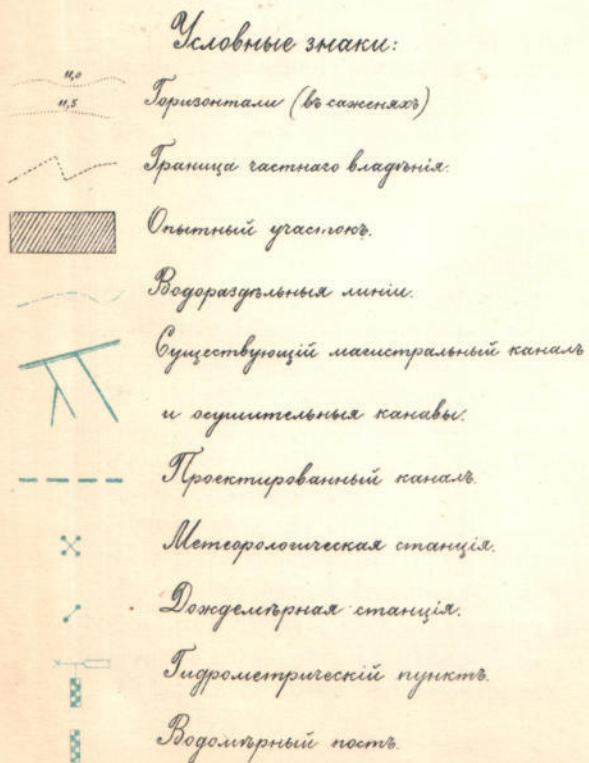 Условные знаки:
11,0
11,5
Горизонтали (въ саженяхъ)
Граница частнаго владѣнія.
Опытный участокъ.
Водораздѣльныя линіи.
Существующій магистральный каналъ
и осушительныя канавы.
Проектированный каналъ.
Метеорологическая станція.
Дождемѣрная станція.
Гидрометрическій пунктъ.
Водомѣрный постъ.